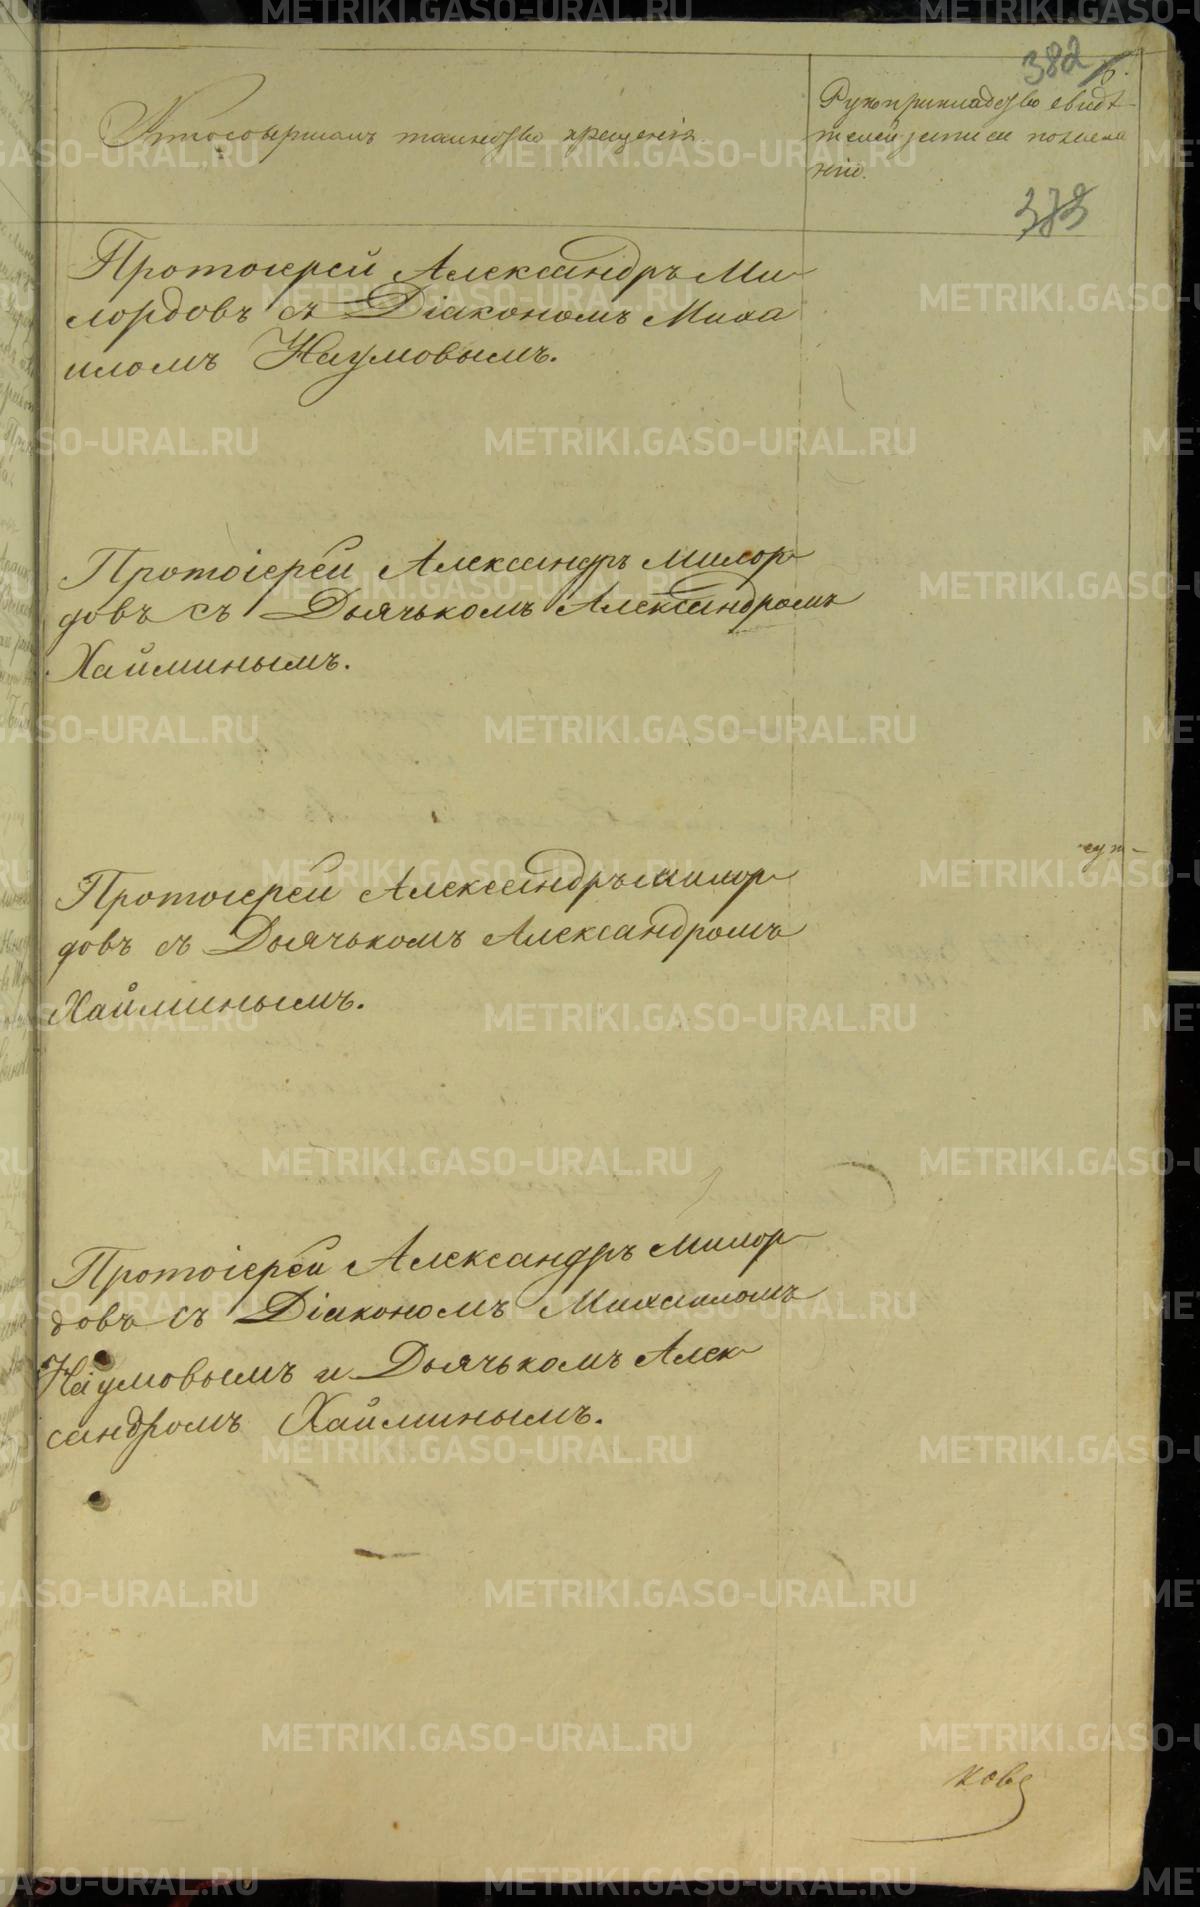 382
6.
Кто совершалъ таинство крещенія.
Рукоприкладство свидѣ-
телей записи по жела
нію.
373
Протоіерей Александръ Ми-
лордовъ съ Діакономъ Миха
иломъ Наумовымъ.
Протоіерей Александръ Милор-
довъ съ Дьячькомъ Александромъ
Хайминымъ.
Протоіерей Александръ Милор-
довъ съ Дьячькомъ Александромъ
Хайминымъ.
Протоіерей Александръ Милор-
довъ съ Діакономъ Михаиломъ
Наумовымъ и Дьячькомъ Алек-
сандромъ Хайминымъ.
ковъ
METRIKI.GASO-URAL.RU